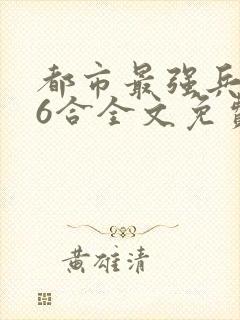 都市最强兵
6合全文免费
黄雄清